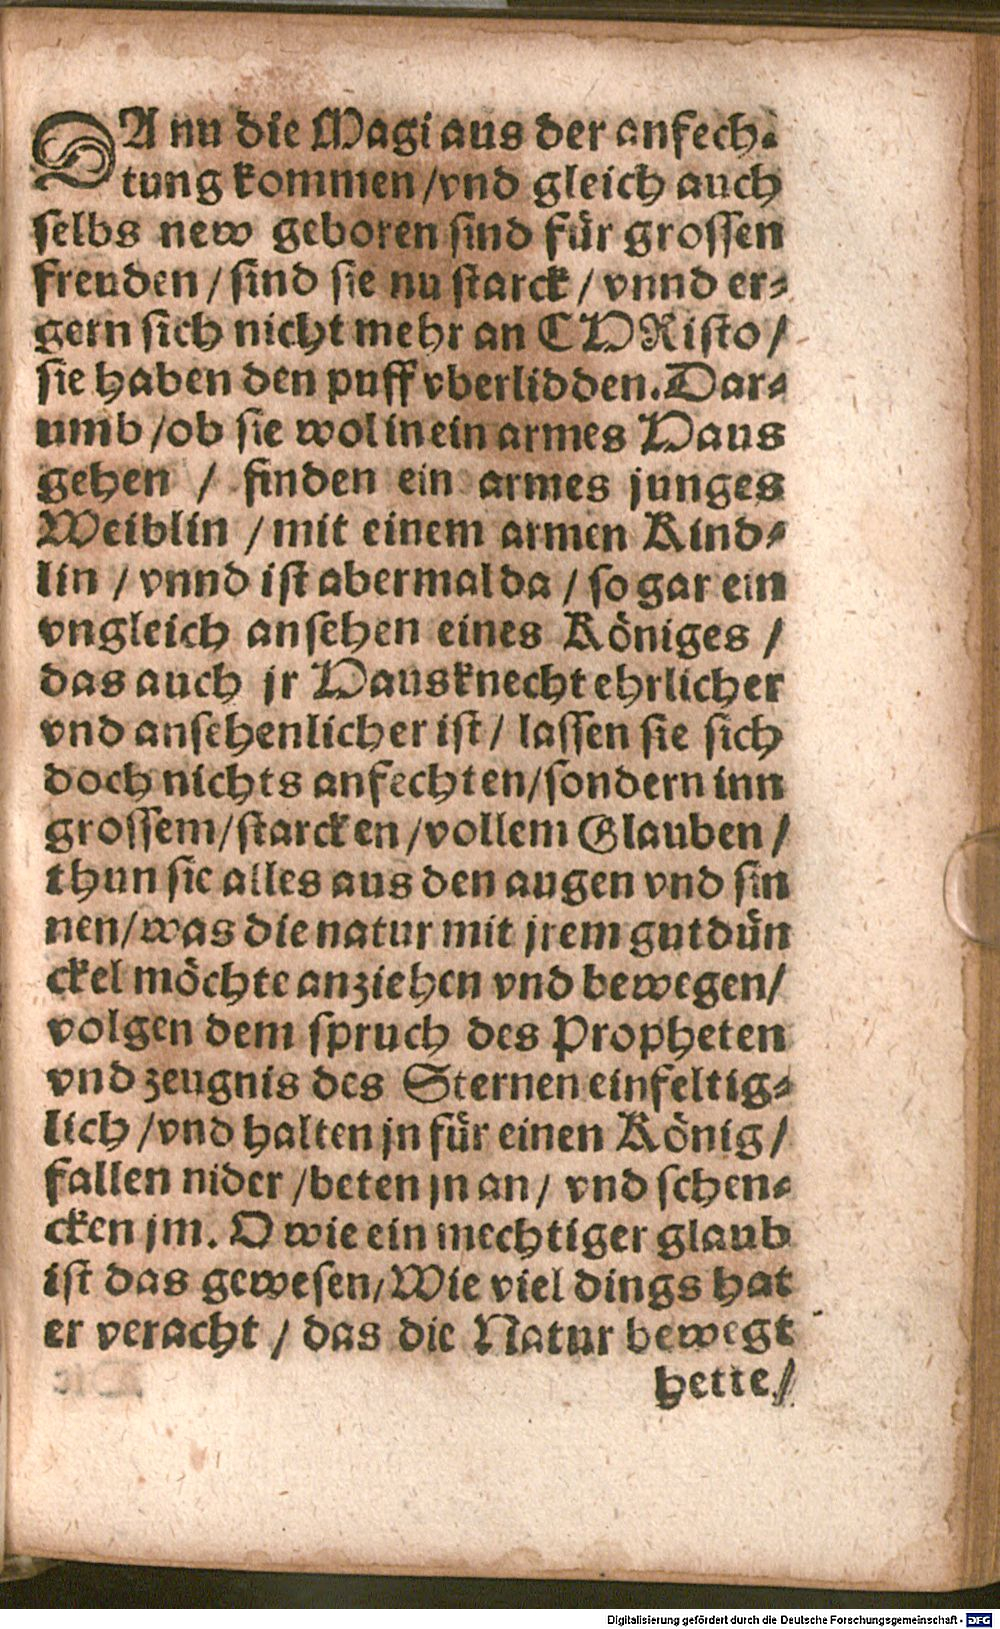 DA nu die Magi aus der anfech-
tung kommen/vnd gleich auch
selbs new geboren sind für grossen
freuden/sind sie nu starck/vnnd er-
gern sich nicht mehr an CHRisto/
sie haben den puff vberlidden. Dar-
umb/ob sie wol in ein armes Haus
gehen / finden ein armes junges
Weiblin /mit einem armen Kind-
lin /vnnd ist abermal da / so gar ein
vngleich ansehen eines Königes /
das auch jr Hausknecht ehrlicher
vnd ansehenlicher ist/ lassen sie sich
doch nichts anfechten/sondern inn
grossem/starcken/vollem Glauben/
thun sie alles aus den augen vnd sin
nen/was die natur mit jrem gutdün
ckel möchte anziehen vnd bewegen/
volgen dem spruch des Propheten
vnd zeugnis des Sternen einfeltig-
lich/vnd halten jn für einen König/
fallen nider/beten jn an/ vnd schen-
cken jm. O wie ein mechtiger glaub
ist das gewesen/Wie viel dings hat
er veracht / das die Natur bewegt
hette/
Digitalisierung gefördert durch die Deutsche Forschungsgemeinschaft - DFG